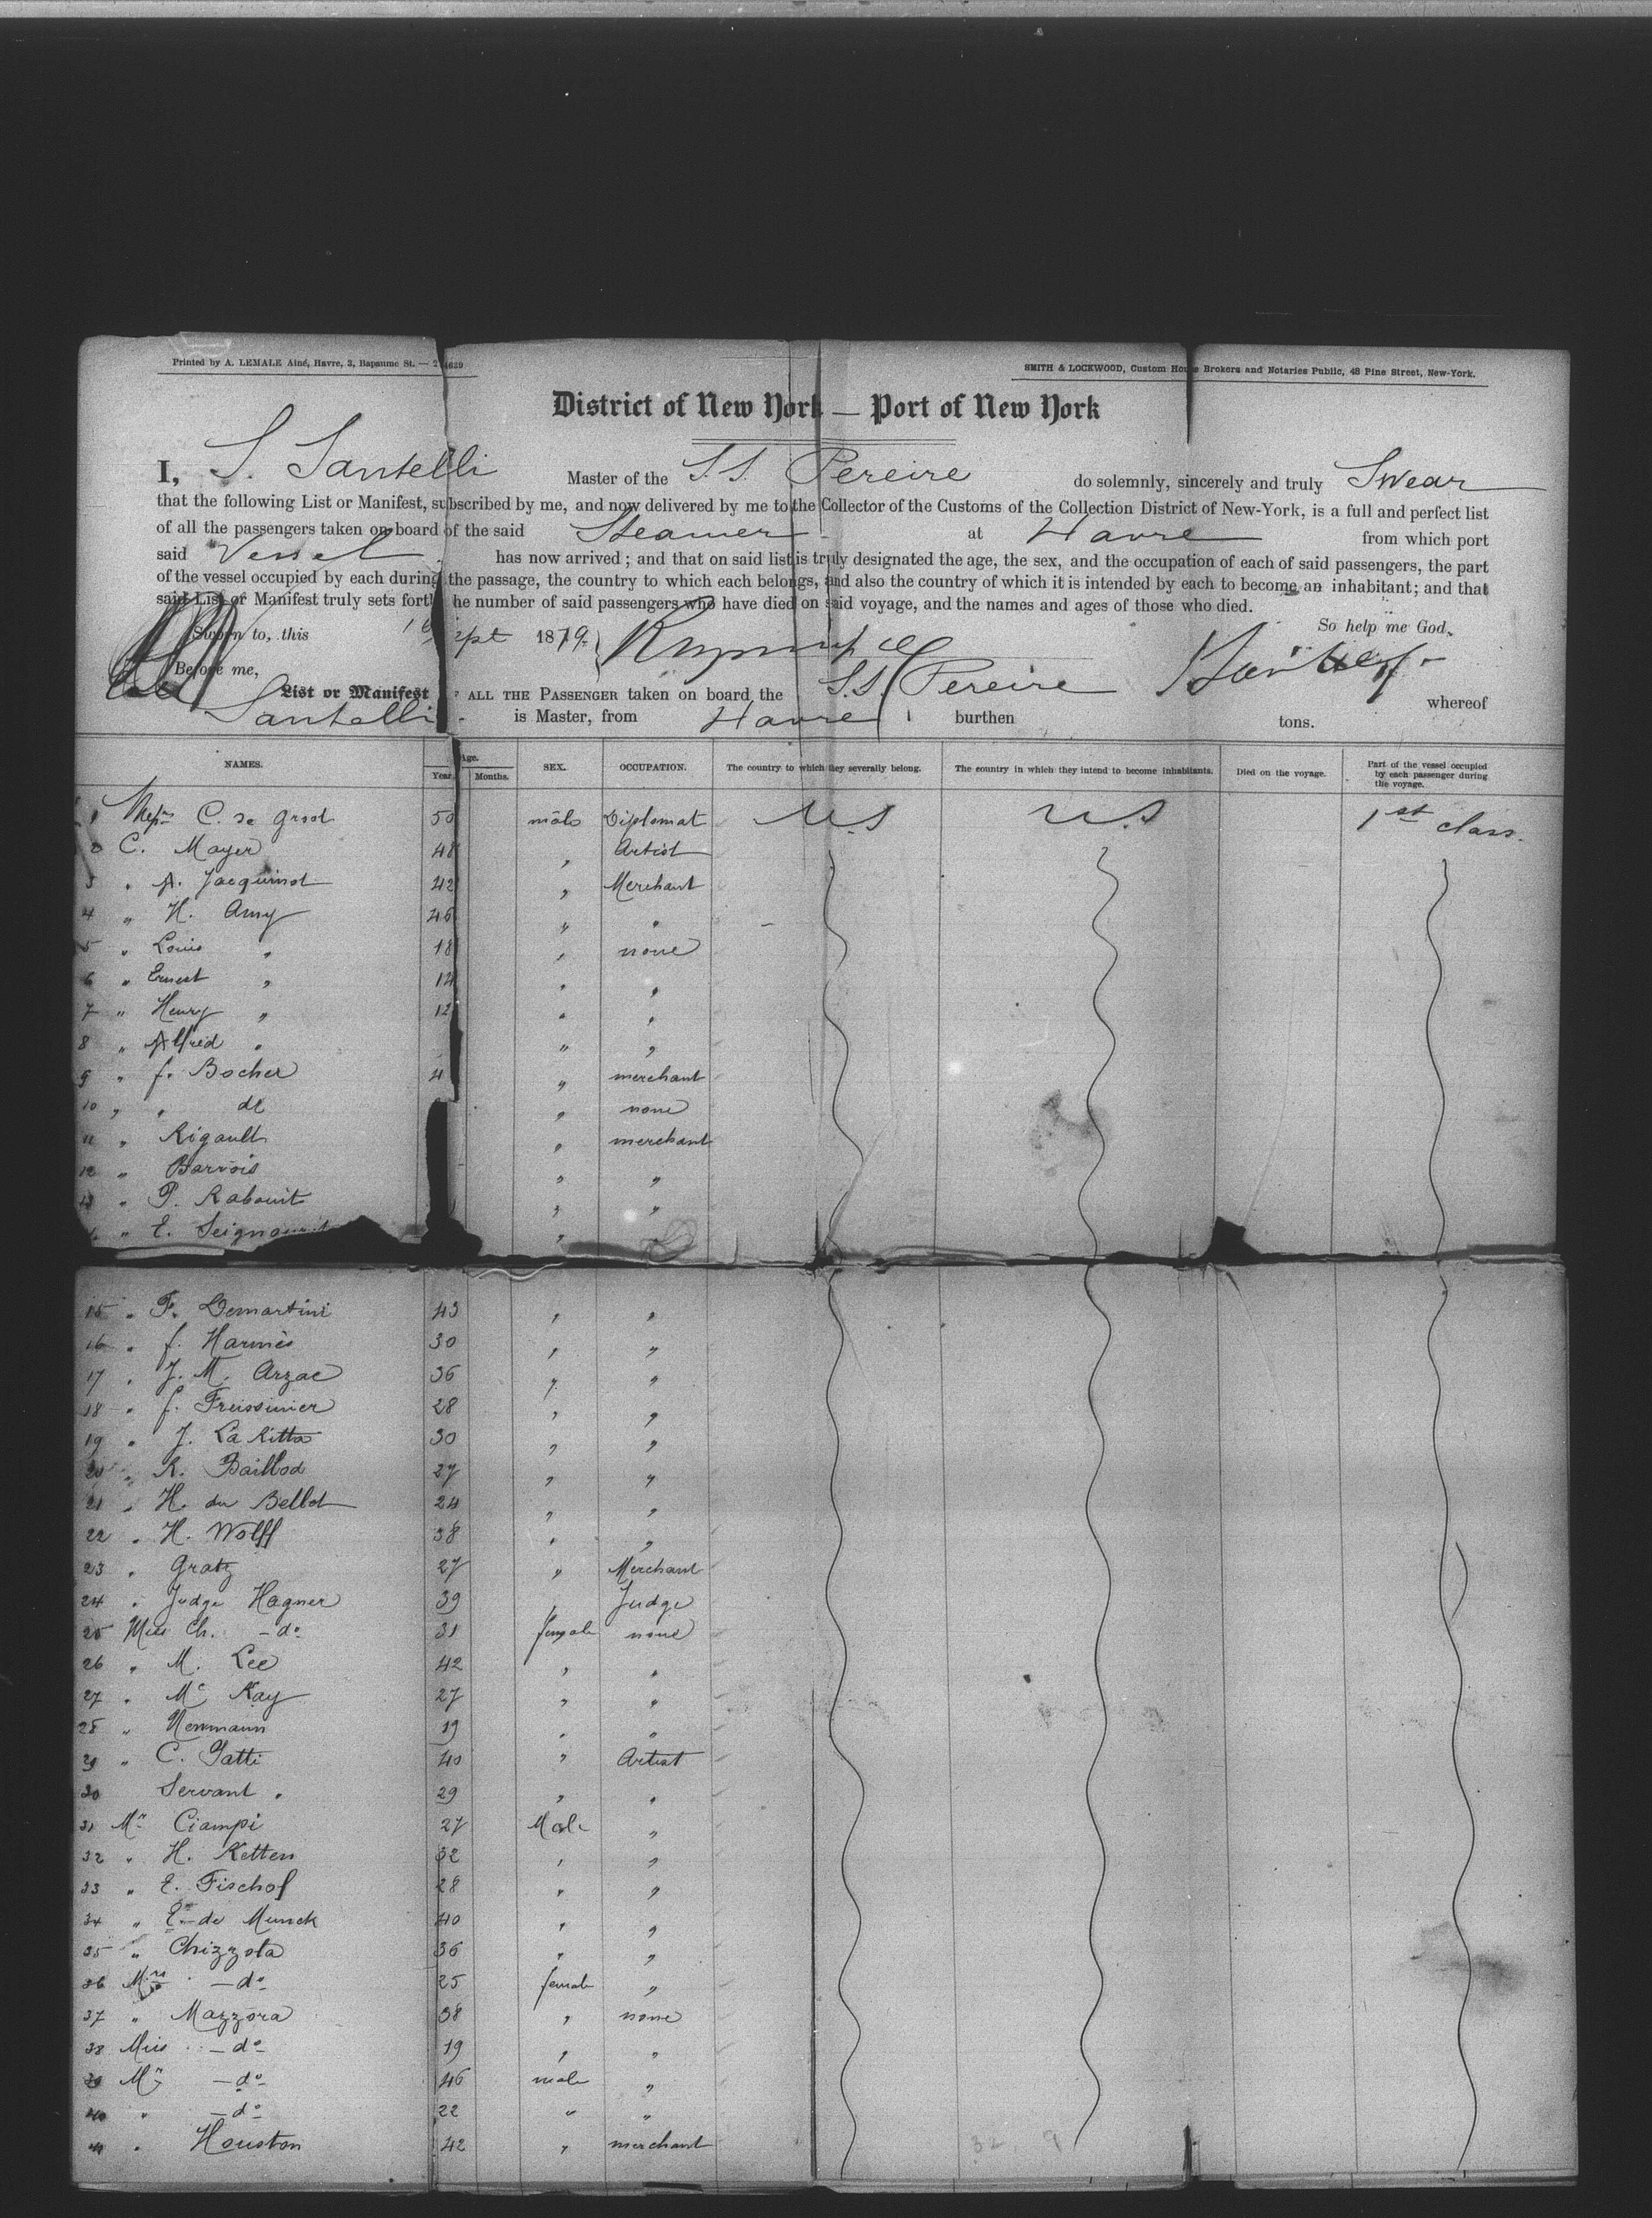 Printed by A. LEMALE Aîné, Havre, 3, Bapaume St. — 2 4629
SMITH & LOCKWOOD, Custom House Brokers and Notaries Public, 48 Pine Street, New-York.
District of New York — Port of New York
I, S. Santelli Master of the S.S. Pereire do solemnly, sincerely and truly Swear
that the following List or Manifest, subscribed by me, and now delivered by me to the Collector of the Customs of the Collection District of New-York, is a full and perfect list
of all the passengers taken on board of the said Steamer at Havre from which port
said Vessel has now arrived; and that on said list is truly designated the age, the sex, and the occupation of each of said passengers, the part
of the vessel occupied by each during the passage, the country to which each belongs, and also the country of which it is intended by each to become an inhabitant; and that
said List or Manifest truly sets forth the number of said passengers who have died on said voyage, and the names and ages of those who died.
So help me God.
Sworn to, this Sept 1879
Before me,
List or Manifest ALL THE PASSENGER taken on board the S.S. Pereire whereof
Santelli is Master, from Havre burthen tons.
NAMES. Age. Year. Months. SEX. OCCUPATION. The country to which they severally belong. The country in which they intend to become inhabitants. Died on the voyage. Part of the vessel occupied by each passenger during the voyage.
1 C. de 50 male Diplomat U.S U.S 1st class.
2 C. Mayer 48 " Artist
3 " A. Jacquinot 42 " Merchant
4 " H. Amy 46 " "
5 " Louis " 18 " none
6 " Ernest " 14 " "
7 " Henry " 12 " "
8 " Alfred " " "
9 " J. Bocher 4 " merchant
10 " " " none
11 " Rigault " merchant
12 " Barrois " "
13 " P. Rabouit " "
" E. " "
15 " F. Demartini 43 " "
16 " J. Harmès 30 " "
17 " J. M. Arzac 36 " "
18 " J. Freissinier 28 " "
19 " J. La Ritta 30 " "
20 " R. Baillod 27 " "
21 " H. du Bellot 24 " "
22 " H. Wolff 38 " "
23 " Gratz 27 " Merchant
24 " Judge Hagner 39 " Judge
25 Miss Ch. — do 31 female none
26 " M. Lee 42 " "
27 " Mc Kay 27 " "
28 " Newmann 19 " "
29 " C. Patti 40 " Artist
30 Servant " 29 " "
31 Mr Ciampi 27 Male "
32 " H. Ketten 32 " "
33 " E. Fischof 28 " "
34 " de Munck 40 " "
35 " Chizzola 36 " "
36 Mrs — do 25 female "
37 " Mazzora 38 " none
38 Miss — do 19 " "
39 Mr — do 46 male "
40 " — do 22 " "
41 " Houston 42 " merchant